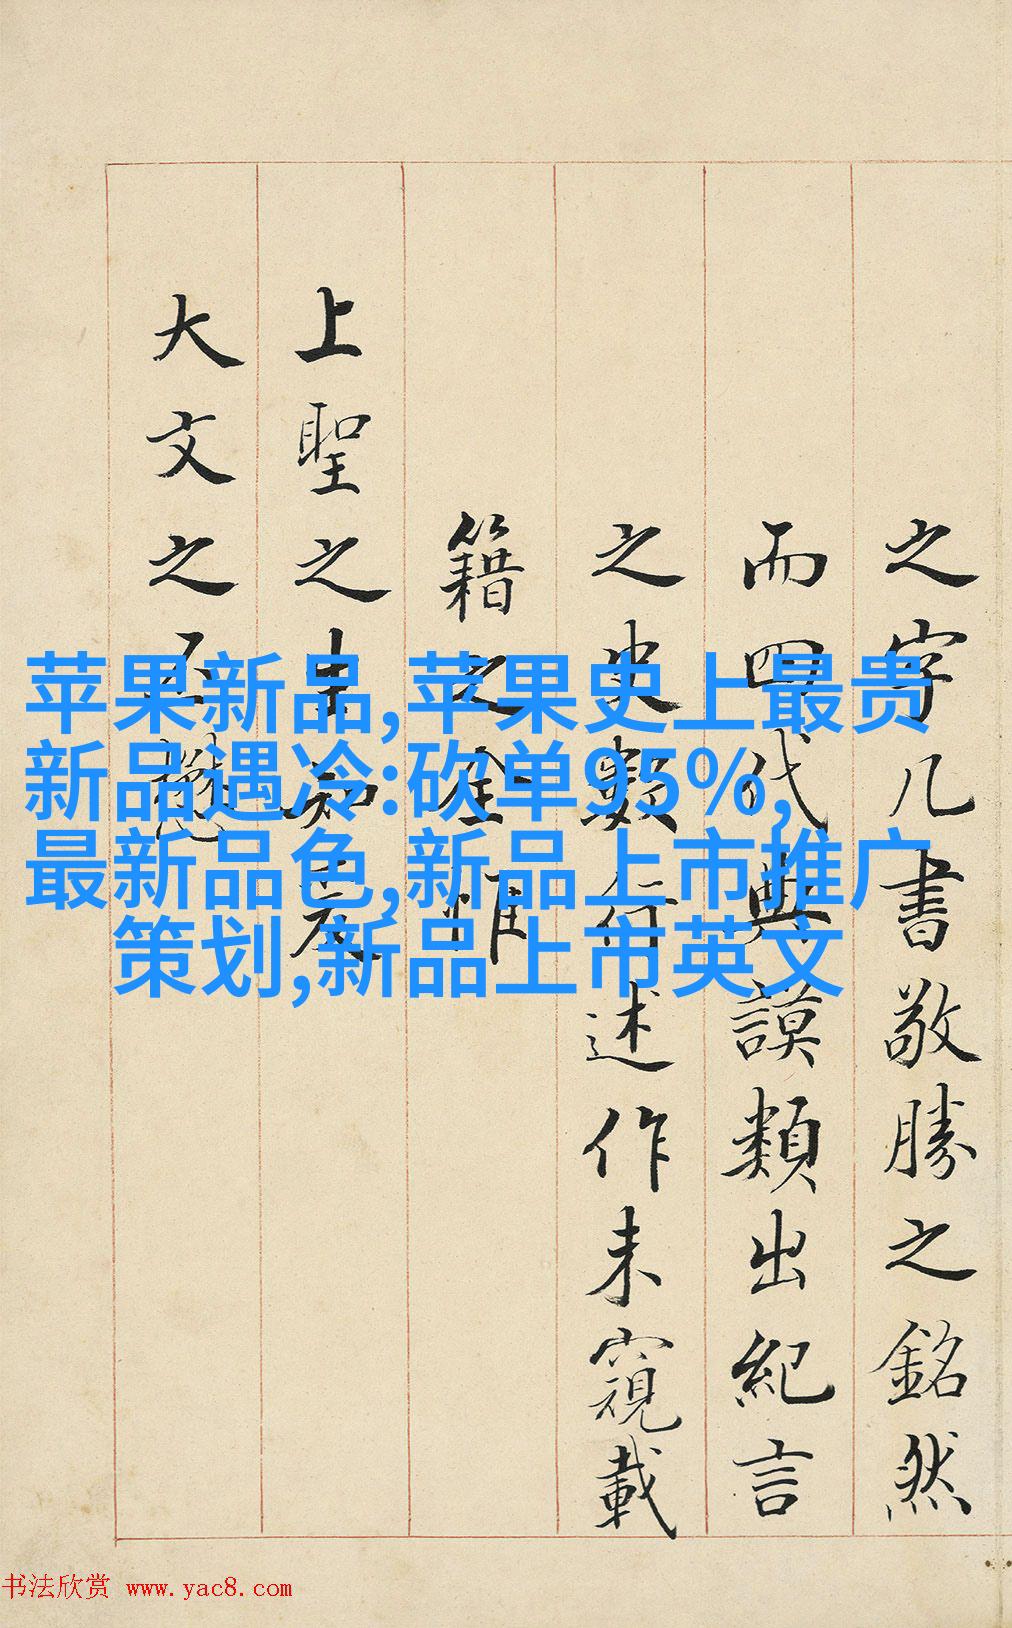 之字几書敬勝之銘然
而四代典謨類出紀言
之史數行述作未窺載
籍之全惟
上聖之生知
大文之懋
苹果新品,苹果史上最贵
新品遇冷:砍单95%,
最新品色,新品上市推广
策划,新品上市英文
书法欣赏 www.yac8.com